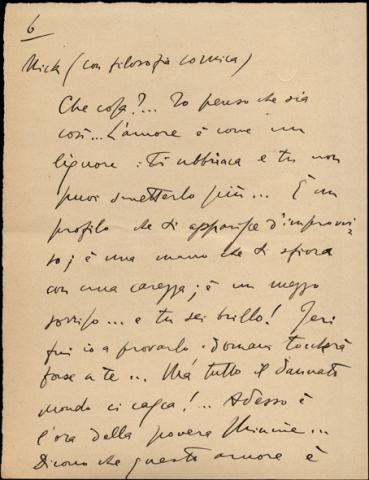 6
Mick (con filosofia comica)
Che cosa?... Io penso che sia
così... L'amore è come un
liquore: Ti ubbriaca e tu non
puoi smetterlo più... È un
profilo che ti apparisce d'improvvi-
so; è una mano che ti sfiora
con una carezza; è un mezzo
sorriso... e tu sei brillo! Ieri
fui io a provarlo. domani toccherà
forse a te... Ma tutto il dannato
mondo ci casca!... Adesso è
l'ora della povera Minnie...
Dicono che questo amore è